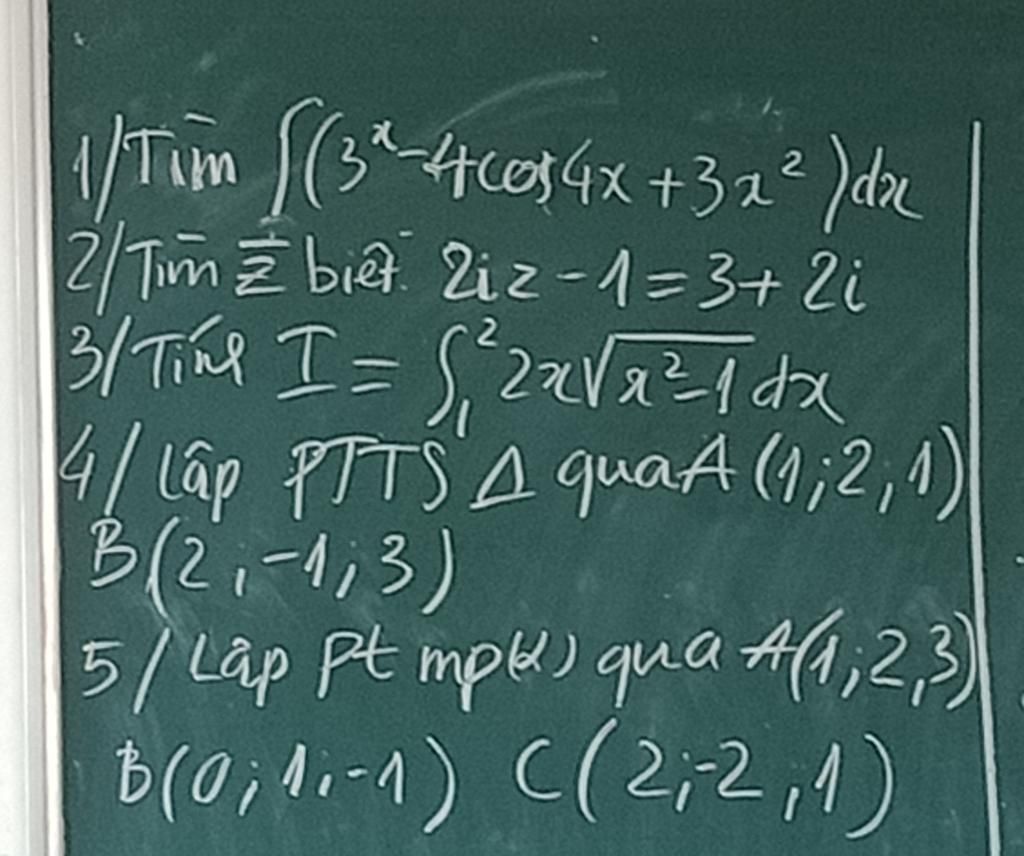 1/ Tìm ∫(3ˣ - 4cos4x + 3x²)dx
2/ Tìm z̄ biết 2iz - 1 = 3 + 2i
3/ Tính I = ∫₁² 2x√(x²-1) dx
4/ Lập PTTS Δ qua A(1;2,1)
B(2;-1;3)
5/ Lập pt mp(α) qua A(1;2,3)
B(0;1;-1) C(2;-2;1)